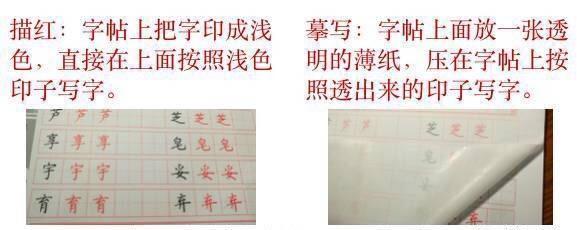 描红：字帖上把字印成浅
色，直接在上面按照浅色
印子写字。
摹写：字帖上面放一张透
明的薄纸，压在字帖上按
照透出来的印子写字。
芦 芦 芦 芝 芝 芝
享 享 享 皂 皂 皂
宇 宇 宇 妥 妥 妥
育 育 育 弃 弃 弃
芦 芦 芝 芝 芝
皂
弃